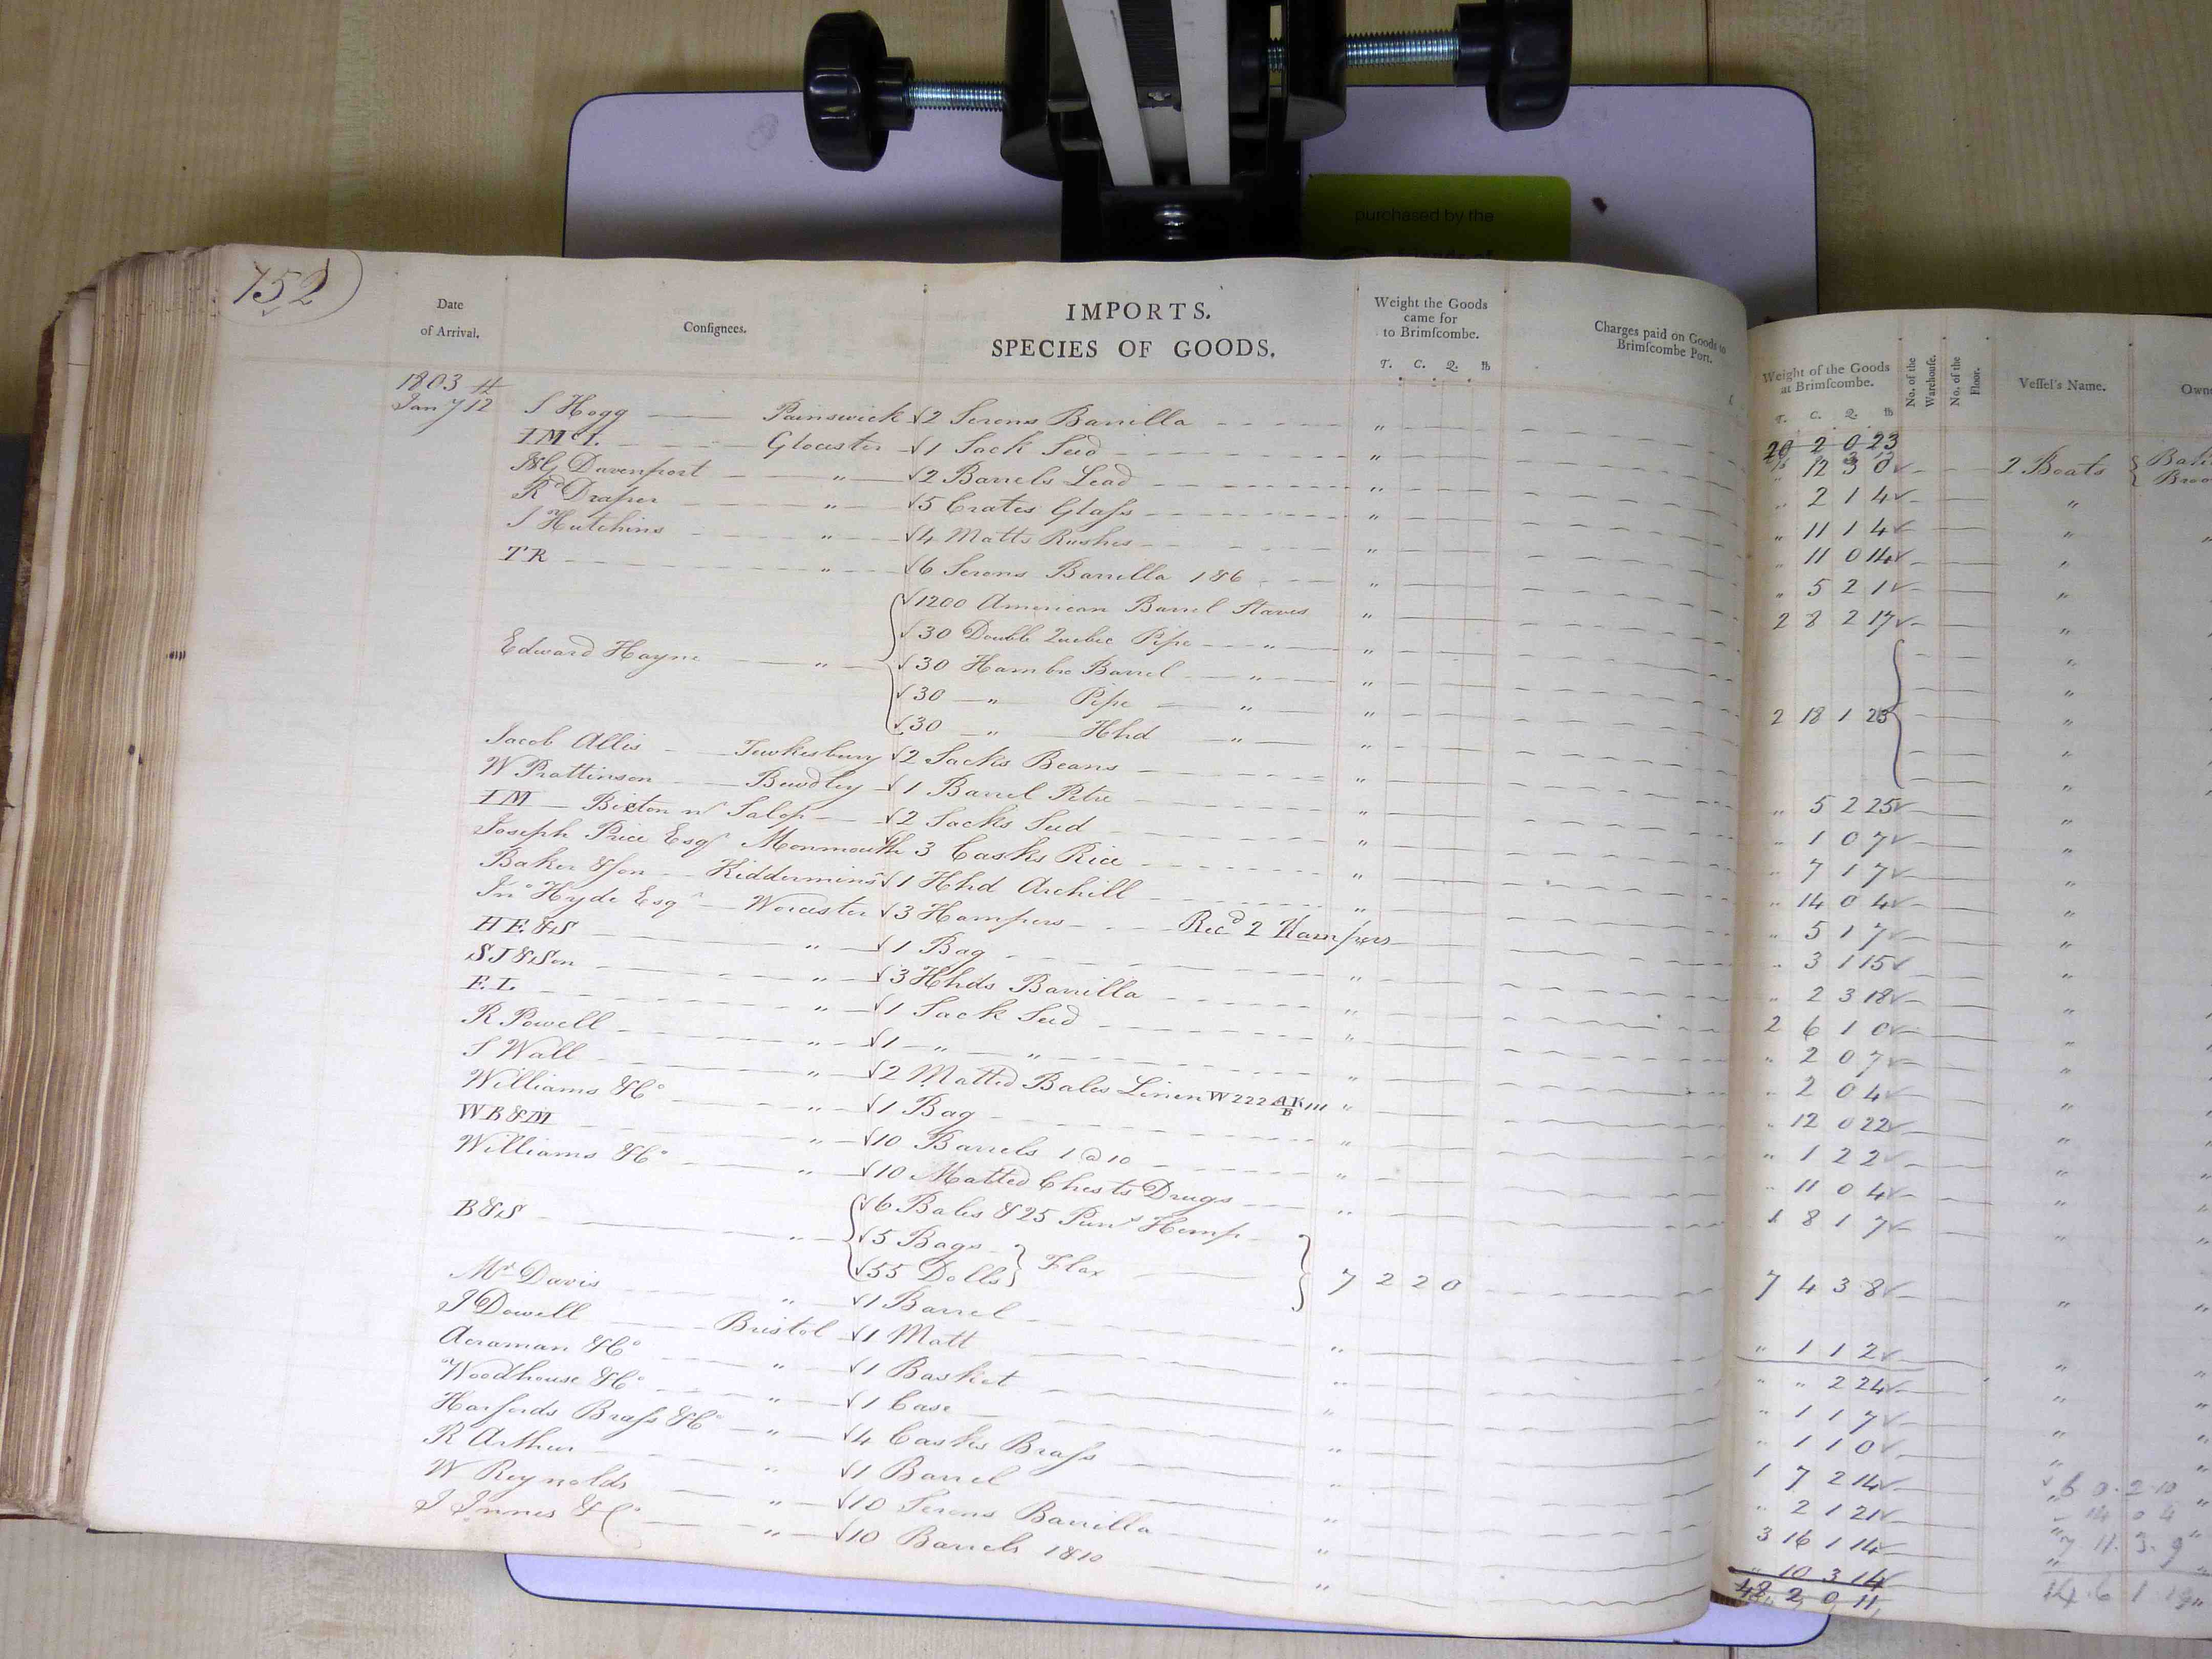 purchased by the
152
Date of Arrival.
Consignees.
IMPORTS.
SPECIES OF GOODS.
Weight the Goods came for to Brimscombe.
T. C. Q. lb
Charges paid on Goods to Brimscombe Port.
Weight of the Goods at Brimscombe.
T. C. Q. lb
No. of the Warehouse.
No. of the Floor.
Vessel's Name.
1803
20 2 0 23
Jany 12 S Hogg Painswick √2 Serons Barrilla " " 12 3 0 2 Boats
IMcI. Glocester √1 Sack Seed " " 2 1 4 "
J&G Davenport " √2 Barrels Lead " " 11 1 4 "
Rd Draper " √5 Crates Glass " " 11 0 14 "
S Hutchins " √4 Matts Rushes " " 5 2 1 "
TR " √6 Serons Barrilla 1 & 6 " 2 8 2 17 "
√1200 American Barrel Staves " "
√30 Double Quebec Pipe " " "
Edward Hayne " √30 Hambro Barrel " " 2 18 1 23 "
√30 " Pipe " " "
√30 " Hhd " " "
Jacob Allis Tewkesbury √2 Sacks Beans " " 5 2 25 "
W Prattinson Bewdley √1 Barrel Petre " " 1 0 7 "
IM Bicton nr Salop √2 Sacks Seed " " 7 1 7 "
Joseph Price Esqr Monmouth 3 Casks Rice " " 14 0 4 "
Baker & Son Kidderminsr √1 Hhd Archill " " 5 1 7 "
Jno Hyde Esqr Worcester √3 Hampers Recd 2 Hampers " 3 1 15 "
HE&S " √1 Bag " " 2 3 18 "
SJ&Son " √3 Hhds Barrilla " 2 6 1 0 "
E.L " √1 Sack Seed " " 2 0 7 "
R Powell " √1 " " " " 2 0 4 "
S Wall " √2 Matted Bales Linen W222 AK/B 111 " " 12 0 22 "
Williams & Co " √1 Bag " " 1 2 2 "
WB&M " √10 Barrels 1 @ 10 " " 11 0 4 "
Williams & Co " √10 Matted Chests Drugs " 1 8 1 7 "
√6 Bales & 25 Puns Hemp
B&S " √5 Bags Flax 7 2 2 0 7 4 3 8 "
√55 Dolls
Mr Davis " √1 Barrel " " 1 1 2 "
J Dowell Bristol √1 Matt " " " 2 24 "
Acraman & Co " √1 Basket " " 1 1 7 "
Woodhouse & Co " √1 Case " " 1 1 0 "
Harfords Brass & Co " √4 Casks Brass " 1 7 2 14 "
R Arthur " √1 Barrel " " 2 1 21 "
W Reynolds " √10 Serons Barrilla " 3 16 1 14 "
J Innes & Co " √10 Barrels 1 & 10 " " 10 3 14 "
48 2 0 11